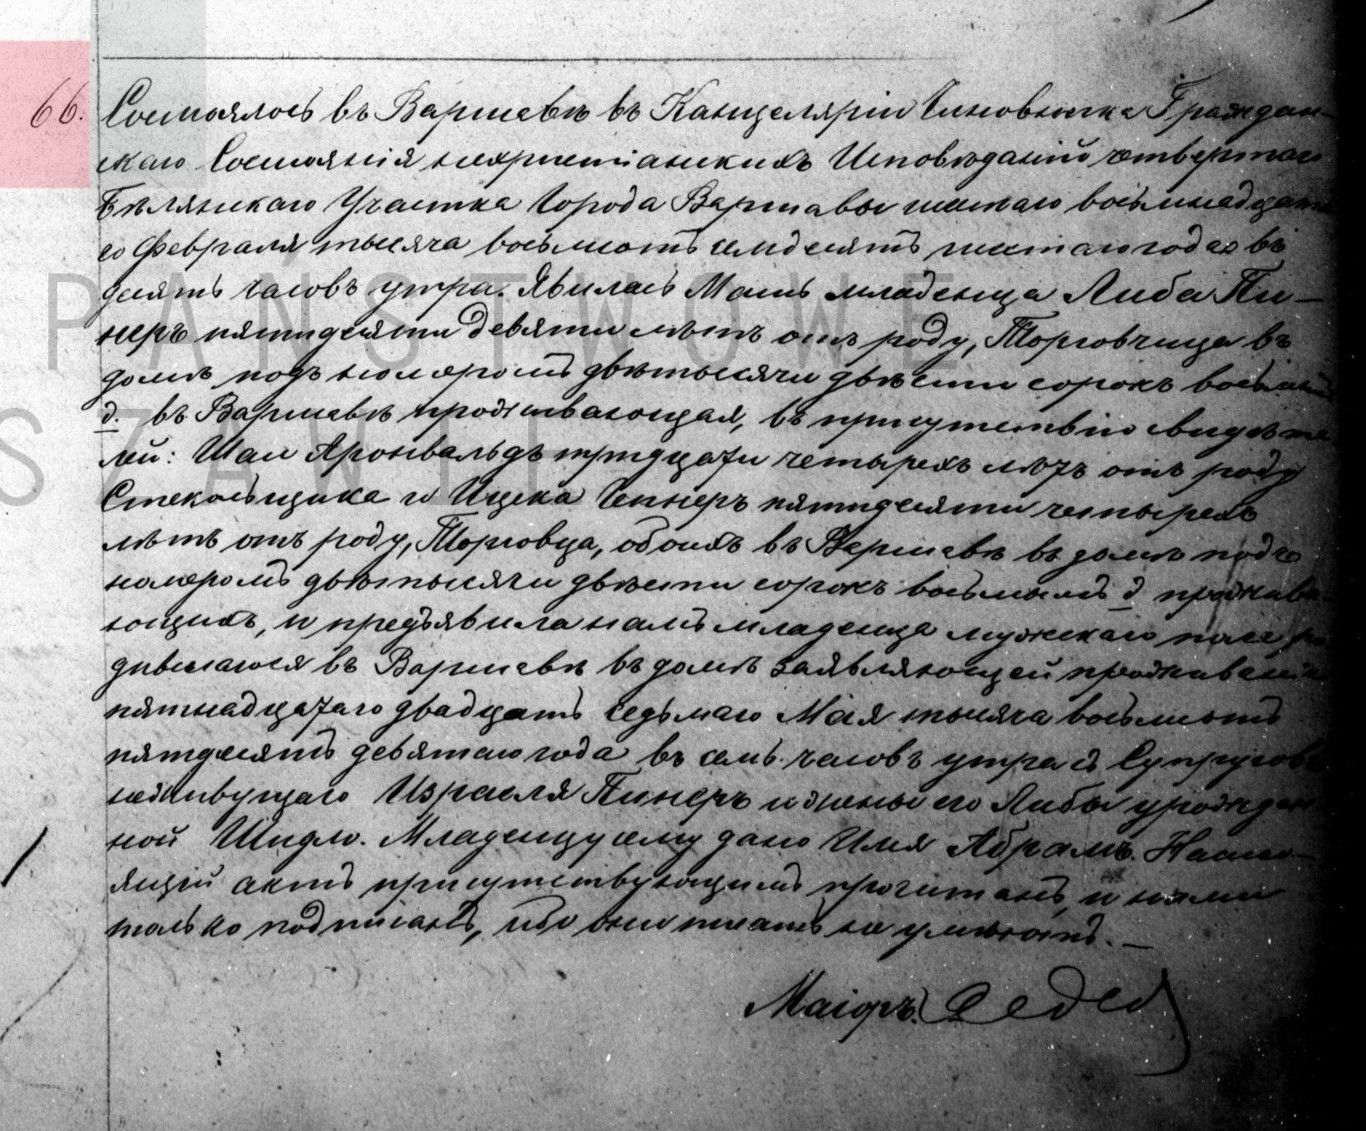 66. Состоялось въ Варшавѣ въ Канцеляріи Чиновника Граждан-
скаго Состоянія нехристіанскихъ Исповѣданій четвертаго
Бѣлянскаго Участка Города Варшавы шестаго восьмнадцата-
го Февраля тысяча восемьсотъ семдесятъ шестаго года въ
десять часовъ утра. Явилась Мать младенца Либа Пи-
неръ пятидесяти девяти лѣтъ отъ роду, Торговчица въ
домѣ подъ номеромъ двѣ тысячи двѣсти сорокъ восьмымъ
д. въ Варшавѣ проживающая, въ присутствіи свидѣте-
лей: Шаи Аронвальдъ тридцати четырехъ лѣтъ отъ роду
Стекольщика и Ицека Чепнеръ пятидесяти четырехъ
лѣтъ отъ роду, Торговца, обоихъ въ Варшавѣ въ домѣ подъ
номеромъ двѣ тысячи двѣсти сорокъ восьмымъ д прожива-
ющихъ, и предъявила намъ младенца мужскаго пола ро
дившагося въ Варшавѣ въ домѣ заявляющей проживанія
пятнадцатаго двадцать седьмаго Мая тысяча восемьсотъ
пятдесятъ девятаго года въ семь часовъ утра съ Супруговъ
неживущаго Израеля Пинеръ и жены его Либы урожден-
ной Шидло. Младенцу сему дано Имя Абрамъ. Насто-
ящій актъ присутствующимъ прочитанъ, и нами
только подписанъ, ибо они писать не умѣютъ. —
Маіоръ
PAŃSTWOWE
SZAWIE